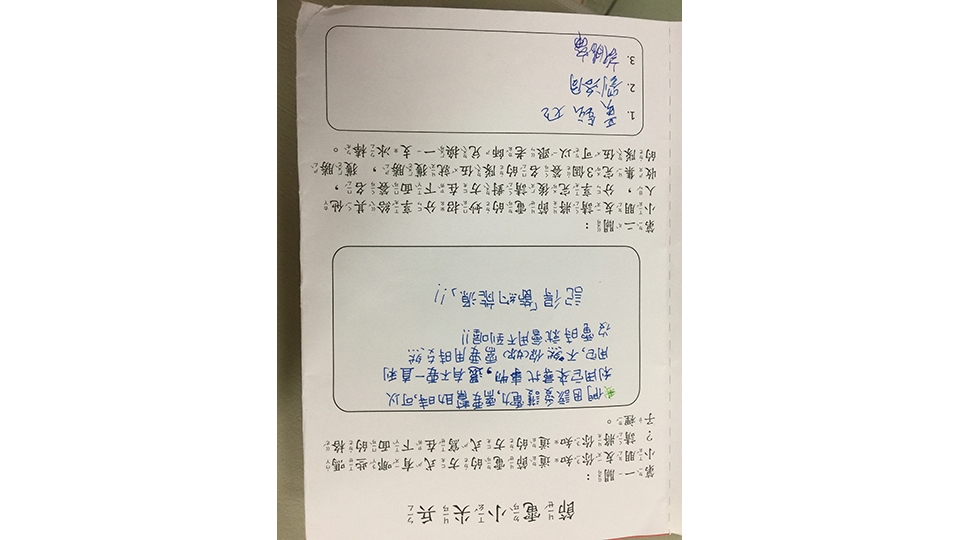 節電小尖兵
第一關：
小朋友你知道節電的方式有哪些嗎
？請將你知道的方式寫在下面的格
子裡。
我們因該愛護電力,需要幫助時,可以
利用它來尋找事物,還有不要一直利
用它,不然你(妳)需要用時突然
沒電時就會用不到喔!!
記得「節約能源」!!
第二關：
小朋友請將節電的妙招分享給其他
人，分享完後請對方在下面簽名，
收集完3個簽名的隊伍就獲勝，獲勝
的隊伍可以跟老師兌換一支冰棒。
1. 黃鈺
2. 劉洛同
3.